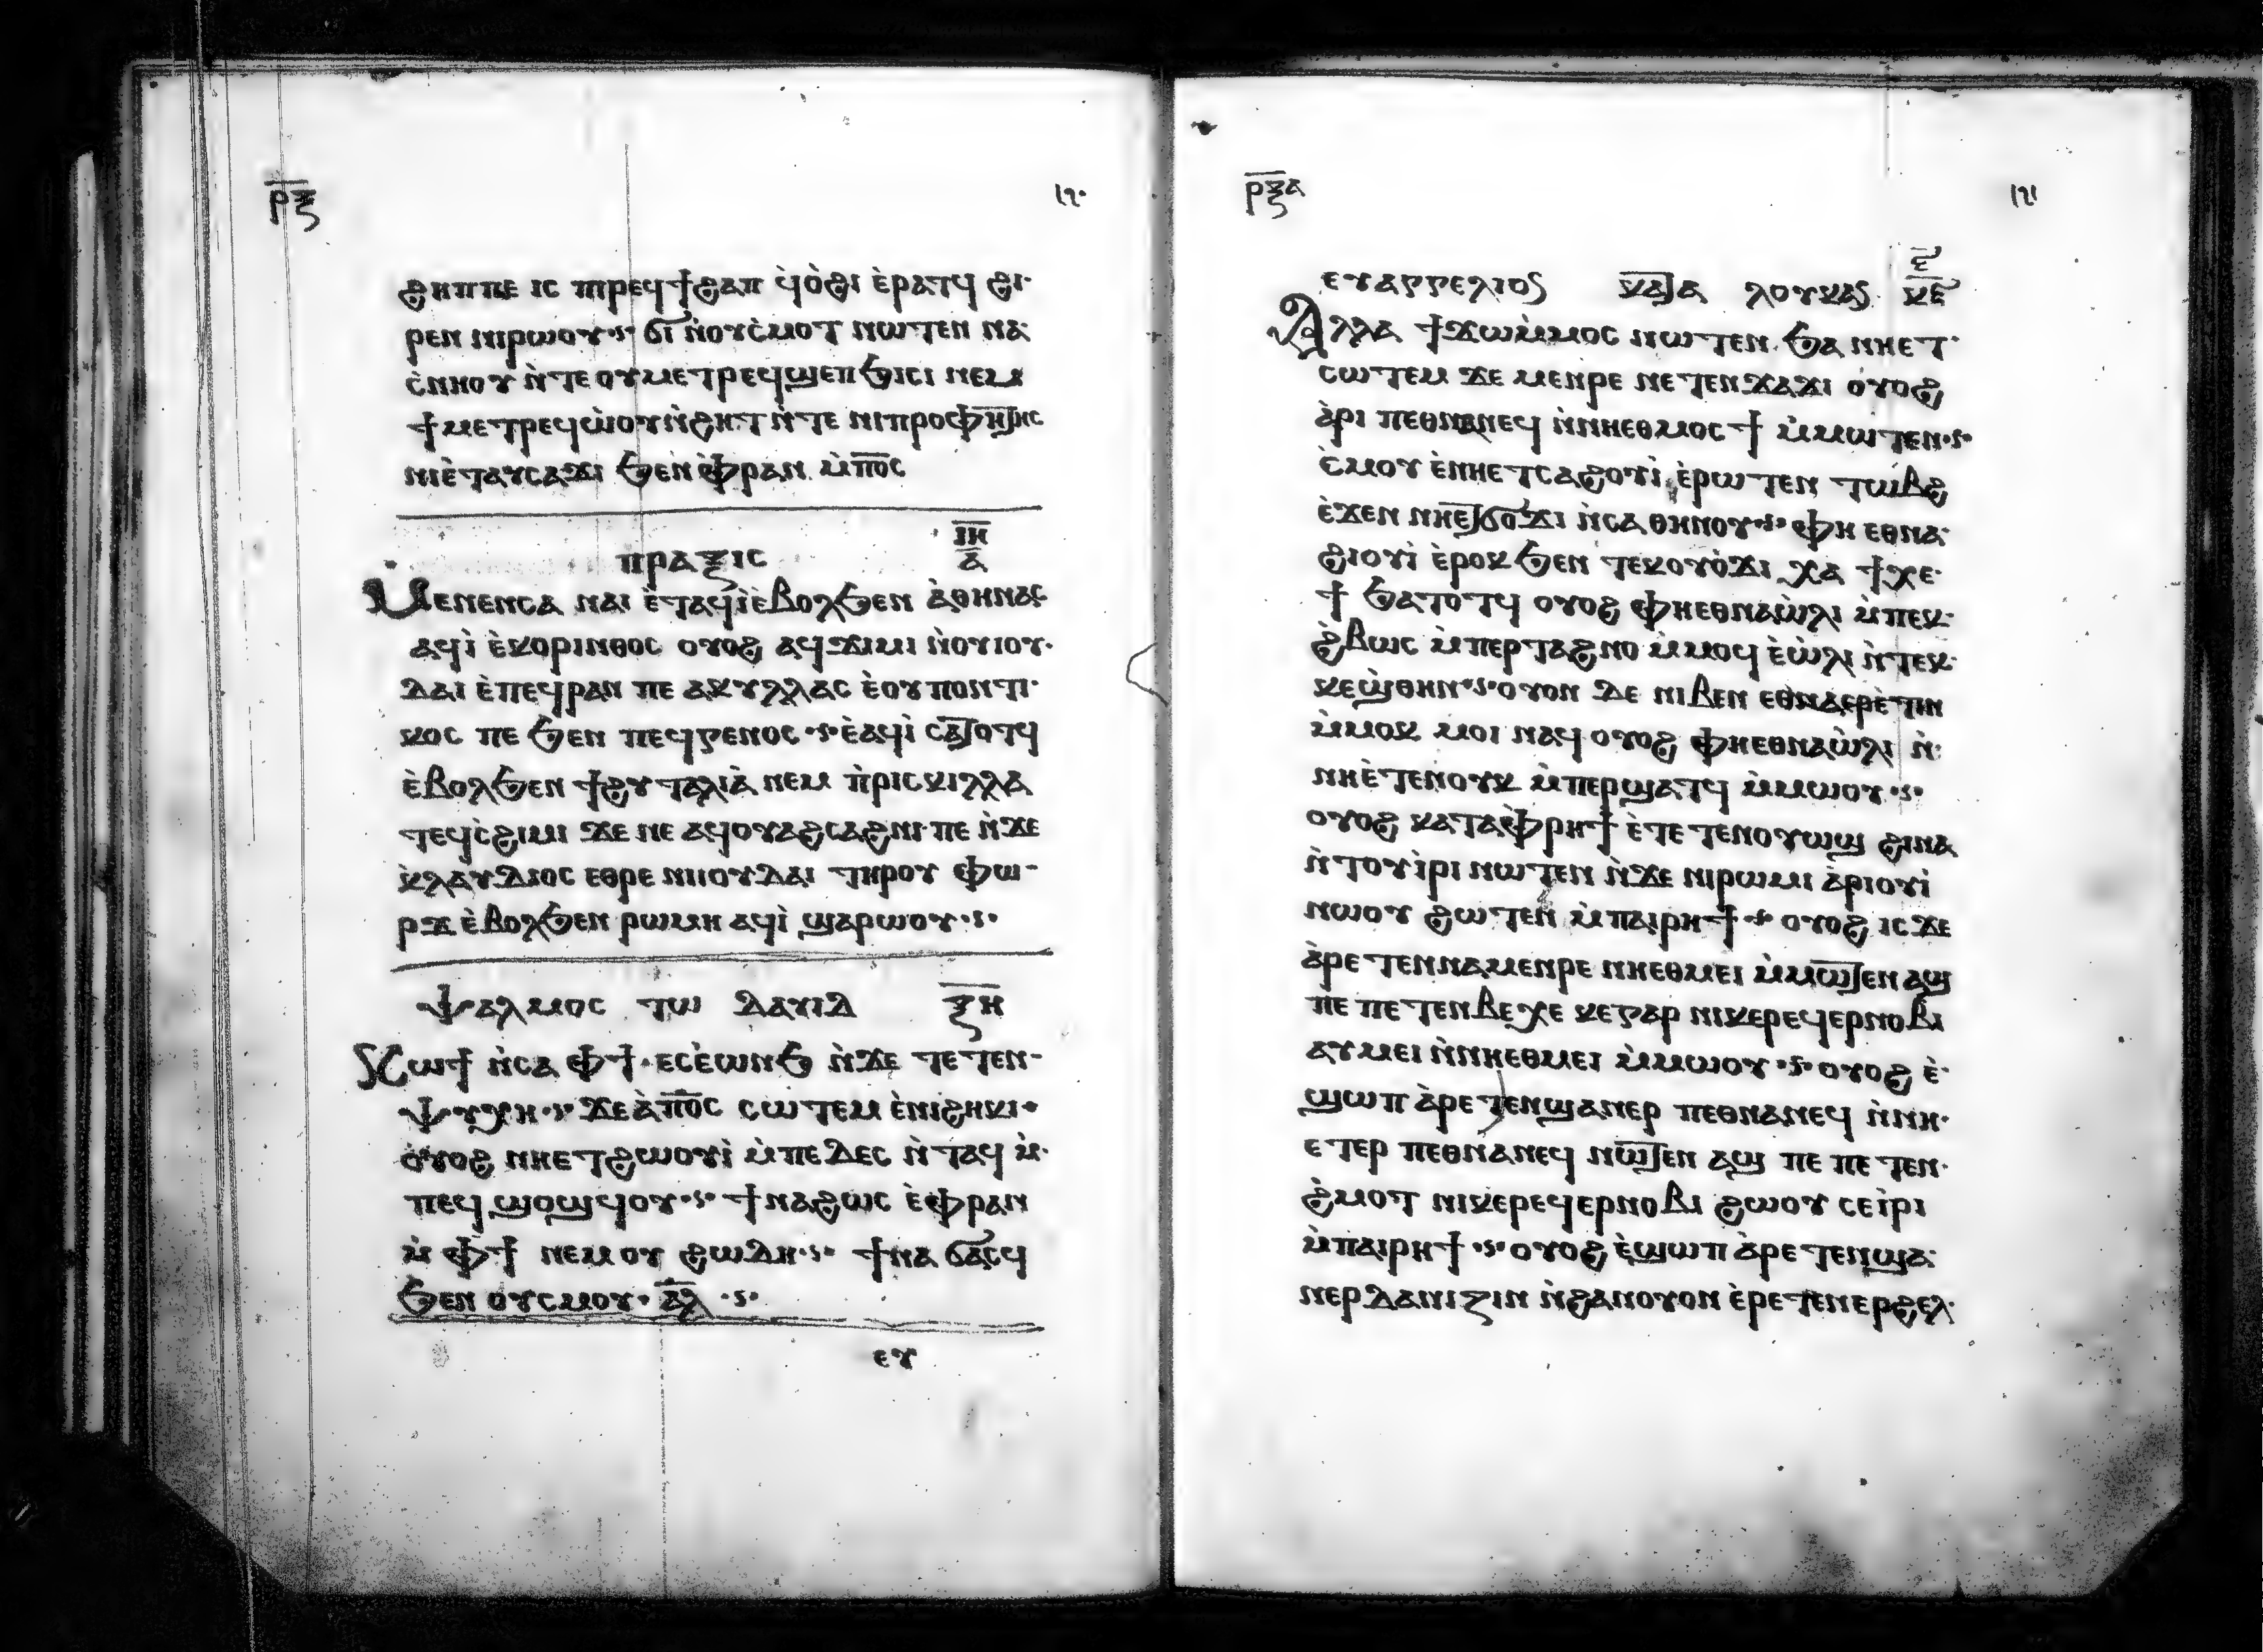 ⲣ̅ⲝ̅ ١٦٠
ϩⲏⲡⲡⲉ ⲓⲥ ⲡⲓⲣⲉϥϯϩⲁⲡ ϥ̀ⲟ̀ϩⲓ ⲉ̀ⲣⲁⲧϥ ϩⲓ
ⲣⲉⲛ ⲛⲓⲣⲱⲟⲩ ϭⲓ ⲛ̀ⲟⲩⲥ̀ⲙⲟⲧ ⲛⲱⲧⲉⲛ ⲛⲁ
ⲥ̀ⲛⲏⲟⲩ ⲛ̀ⲧⲉ ⲟⲩⲙⲉⲧⲣⲉϥϣⲉⲡϧⲓⲥⲓ ⲛⲉⲙ
ϯⲙⲉⲧⲣⲉϥⲱ̀ⲟⲩⲛ̀ϩⲏⲧ ⲛ̀ⲧⲉ ⲛⲓⲡⲣⲟⲫⲏⲧⲏⲥ
ⲛⲓⲉ̀ⲧⲁⲩⲥⲁϫⲓ ϧⲉⲛ ⲫ̀ⲣⲁⲛ ⲙ̀ⲡ̅ⲟ̅ⲥ̅
ⲡⲣⲁⲝⲓⲥ ⲓ̅ⲏ̅ ⲁ̅
Ⲙⲉⲛⲉⲛⲥⲁ ⲛⲁⲓ ⲉ̀ⲧⲁϥⲓ̀ ⲉ̀ⲃⲟⲗϧⲉⲛ ⲁ̀ⲑⲏⲛⲁⲥ
ⲁϥⲓ̀ ⲉ̀ⲕⲟⲣⲓⲛⲑⲟⲥ ⲟⲩⲟϩ ⲁϥϫⲓⲙⲓ ⲛ̀ⲟⲩⲓⲟⲩ
ⲇⲁⲓ ⲉ̀ⲡⲉϥⲣⲁⲛ ⲡⲉ ⲁⲕⲩⲗⲗⲁⲥ ⲉ̀ⲟⲩⲡⲟⲛⲧⲓ
ⲕⲟⲥ ⲡⲉ ϧⲉⲛ ⲡⲉϥⲅⲉⲛⲟⲥ ⲉ̀ⲁϥⲓ̀ ⲥⲁⲧⲟⲧϥ
ⲉ̀ⲃⲟⲗϧⲉⲛ ϯϩⲩⲧⲁⲗⲓⲁ̀ ⲛⲉⲙ ⲡ̀ⲣⲓⲥⲕⲓⲗⲗⲁ
ⲧⲉϥⲥ̀ϩⲓⲙⲓ ϫⲉ ⲛⲉ ⲁϥⲟⲩⲁϩⲥⲁϩⲛⲓ ⲡⲉ ⲛ̀ϫⲉ
ⲕ̀ⲗⲁⲩⲇⲓⲟⲥ ⲉⲑⲣⲉ ⲛⲓⲓⲟⲩⲇⲁⲓ ⲧⲏⲣⲟⲩ ⲫⲱ
ⲣϫ ⲉ̀ⲃⲟⲗϧⲉⲛ ⲣⲱⲙⲏ ⲁϥⲓ̀ ϣⲁⲣⲱⲟⲩ
ⲯⲁⲗⲙⲟⲥ ⲧⲱ ⲇⲁⲩⲓⲇ ⲝ̅ⲏ̅
Ⲕⲱϯ ⲛ̀ⲥⲁ ⲫϯ ⲉⲥⲉ̀ⲱⲛϧ ⲛ̀ϫⲉ ⲧⲉⲧⲉⲛ
ⲯⲩⲭⲏ ϫⲉ ⲁ̀ⲡ̅ⲟ̅ⲥ̅ ⲥⲱⲧⲉⲙ ⲉ̀ⲛⲓϩⲏⲕⲓ
ⲟⲩⲟϩ ⲛⲏⲉⲧϩⲱⲟⲩⲓ̀ ⲙ̀ⲡⲉⲇⲉⲥ ⲛ̀ⲧⲁϥ ⲙ̀
ⲡⲉϥϣⲟϣϥⲟⲩ ϯⲛⲁϩⲱⲥ ⲉ̀ⲫ̀ⲣⲁⲛ
ⲙ̀ⲫϯ ⲛⲉⲙ ⲟⲩ ϩⲱⲇⲏ ϯⲛⲁϭⲁⲥϥ
ϧⲉⲛ ⲟⲩⲥⲙⲟⲩ ⲁ̅ⲗ̅
ⲉⲩ
ⲣ̅ⲝ̅ⲁ̅ ١٦١
ⲉⲩⲁⲅⲅⲉⲗⲓⲟⲥ ⲕⲁⲧⲁ ⲗⲟⲩⲕⲁⲥ ⲋ̅ ⲕ̅ⲉ̅
Ⲁⲗⲗⲁ ϯϫⲱⲙ̀ⲙⲟⲥ ⲛⲱⲧⲉⲛ ϧⲁ ⲛⲏⲉⲧ
ⲥⲱⲧⲉⲙ ϫⲉ ⲙⲉⲛⲣⲉ ⲛⲉⲧⲉⲛϫⲁϫⲓ ⲟⲩⲟϩ
ⲁ̀ⲣⲓ ⲡⲉⲑⲛⲁⲛⲉϥ ⲛ̀ⲛⲏⲉⲑⲙⲟⲥϯ ⲙ̀ⲙⲱⲧⲉⲛ
ⲥ̀ⲙⲟⲩ ⲉ̀ⲛⲏⲉⲧⲥⲁϩⲟⲩⲓ̀ ⲉ̀ⲣⲱⲧⲉⲛ ⲧⲱⲃϩ
ⲉ̀ϫⲉⲛ ⲛⲏⲉⲧϭⲟϫⲓ ⲛ̀ⲥⲁ ⲑⲏⲛⲟⲩ ⲫⲏ ⲉⲑⲛⲁ
ϩⲓⲟⲩⲓ̀ ⲉ̀ⲣⲟⲕ ϧⲉⲛ ⲧⲉⲕⲟⲩⲟ̀ϫⲓ ⲭⲁ ϯⲭⲉ
ϯ ϧⲁⲧⲟⲧϥ ⲟⲩⲟϩ ⲫⲏⲉⲑⲛⲁⲱ̀ⲗⲓ ⲙ̀ⲡⲉⲕ
ϩ̀ⲃⲱⲥ ⲙ̀ⲡⲉⲣⲧⲁϩⲛⲟ ⲙ̀ⲙⲟϥ ⲉ̀ⲱ̀ⲗⲓ ⲛ̀ⲧⲉⲕ
ⲕⲉϣⲑⲏⲛ ⲟⲩⲟⲛ ⲇⲉ ⲛⲓⲃⲉⲛ ⲉⲑⲛⲁⲉⲣⲉ̀ⲧⲓⲛ
ⲙ̀ⲙⲟⲕ ⲙⲟⲓ ⲛⲁϥ ⲟⲩⲟϩ ⲫⲏⲉⲑⲛⲁⲱ̀ⲗⲓ ⲛ̀
ⲛⲏⲉ̀ⲧⲉⲛⲟⲩⲕ ⲙ̀ⲡⲉⲣϣⲁⲧϥ ⲙ̀ⲙⲱⲟⲩ
ⲟⲩⲟϩ ⲕⲁⲧⲁⲫ̀ⲣⲏϯ ⲉ̀ⲧⲉⲧⲉⲛⲟⲩⲱϣ ϩⲓⲛⲁ
ⲛ̀ⲧⲟⲩⲓ̀ⲣⲓ ⲛⲱⲧⲉⲛ ⲛ̀ϫⲉ ⲛⲓⲣⲱⲙⲓ ⲁ̀ⲣⲓⲟⲩⲓ̀
ⲛⲱⲟⲩ ϩⲱⲧⲉⲛ ⲙ̀ⲡⲁⲓⲣⲏϯ ⲟⲩⲟϩ ⲓⲥϫⲉ
ⲁ̀ⲣⲉⲧⲉⲛⲛⲁⲙⲉⲛⲣⲉ ⲛⲏⲉⲑⲙⲉⲓ ⲙ̀ⲙⲱⲧⲉⲛ ⲁϣ
ⲡⲉ ⲡⲉⲧⲉⲛⲃⲉⲭⲉ ⲕⲉⲅⲁⲣ ⲛⲓⲕⲉⲣⲉϥⲉⲣⲛⲟⲃⲓ
ⲁⲩⲙⲉⲓ ⲛ̀ⲛⲏⲉⲑⲙⲉⲓ ⲙ̀ⲙⲱⲟⲩ ⲟⲩⲟϩ ⲉ̀
ϣⲱⲡ ⲁ̀ⲣⲉⲧⲉⲛϣⲁⲛⲉⲣ ⲡⲉⲑⲛⲁⲛⲉϥ ⲛ̀ⲛⲏ
ⲉⲧⲉⲣ ⲡⲉⲑⲛⲁⲛⲉϥ ⲛⲱⲧⲉⲛ ⲁϣ ⲡⲉ ⲡⲉⲧⲉⲛ
ϩ̀ⲙⲟⲧ ⲛⲓⲕⲉⲣⲉϥⲉⲣⲛⲟⲃⲓ ϩⲱⲟⲩ ⲥⲉⲓ̀ⲣⲓ
ⲙ̀ⲡⲁⲓⲣⲏϯ ⲟⲩⲟϩ ⲉ̀ϣⲱⲡ ⲁ̀ⲣⲉⲧⲉⲛϣⲁ
ⲛⲉⲣⲇⲁⲛⲓⲍⲓⲛ ⲛ̀ϩⲁⲛⲟⲩⲟⲛ ⲉ̀ⲣⲉⲧⲉⲛⲉⲣϩⲉⲗ